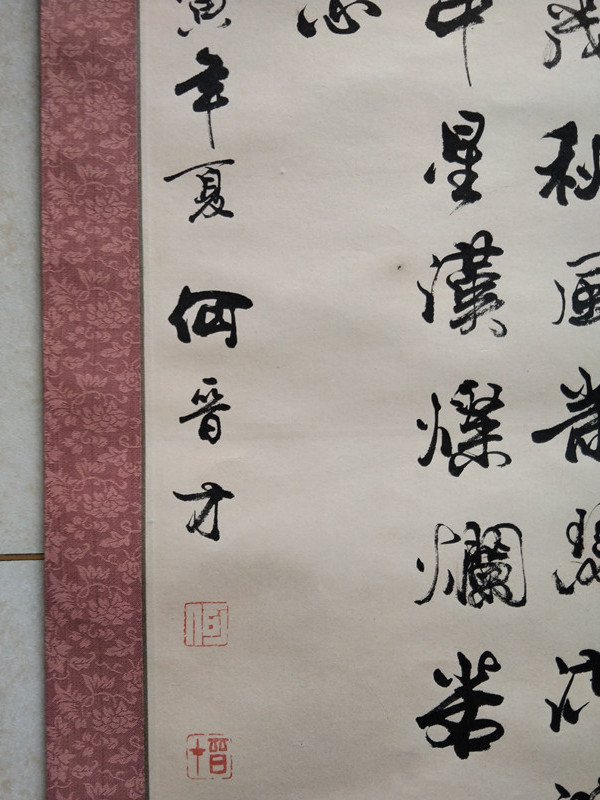 茂秋風蕭瑟洪
中星漢燦爛若
志
寅年夏 何晉才
何
晉才